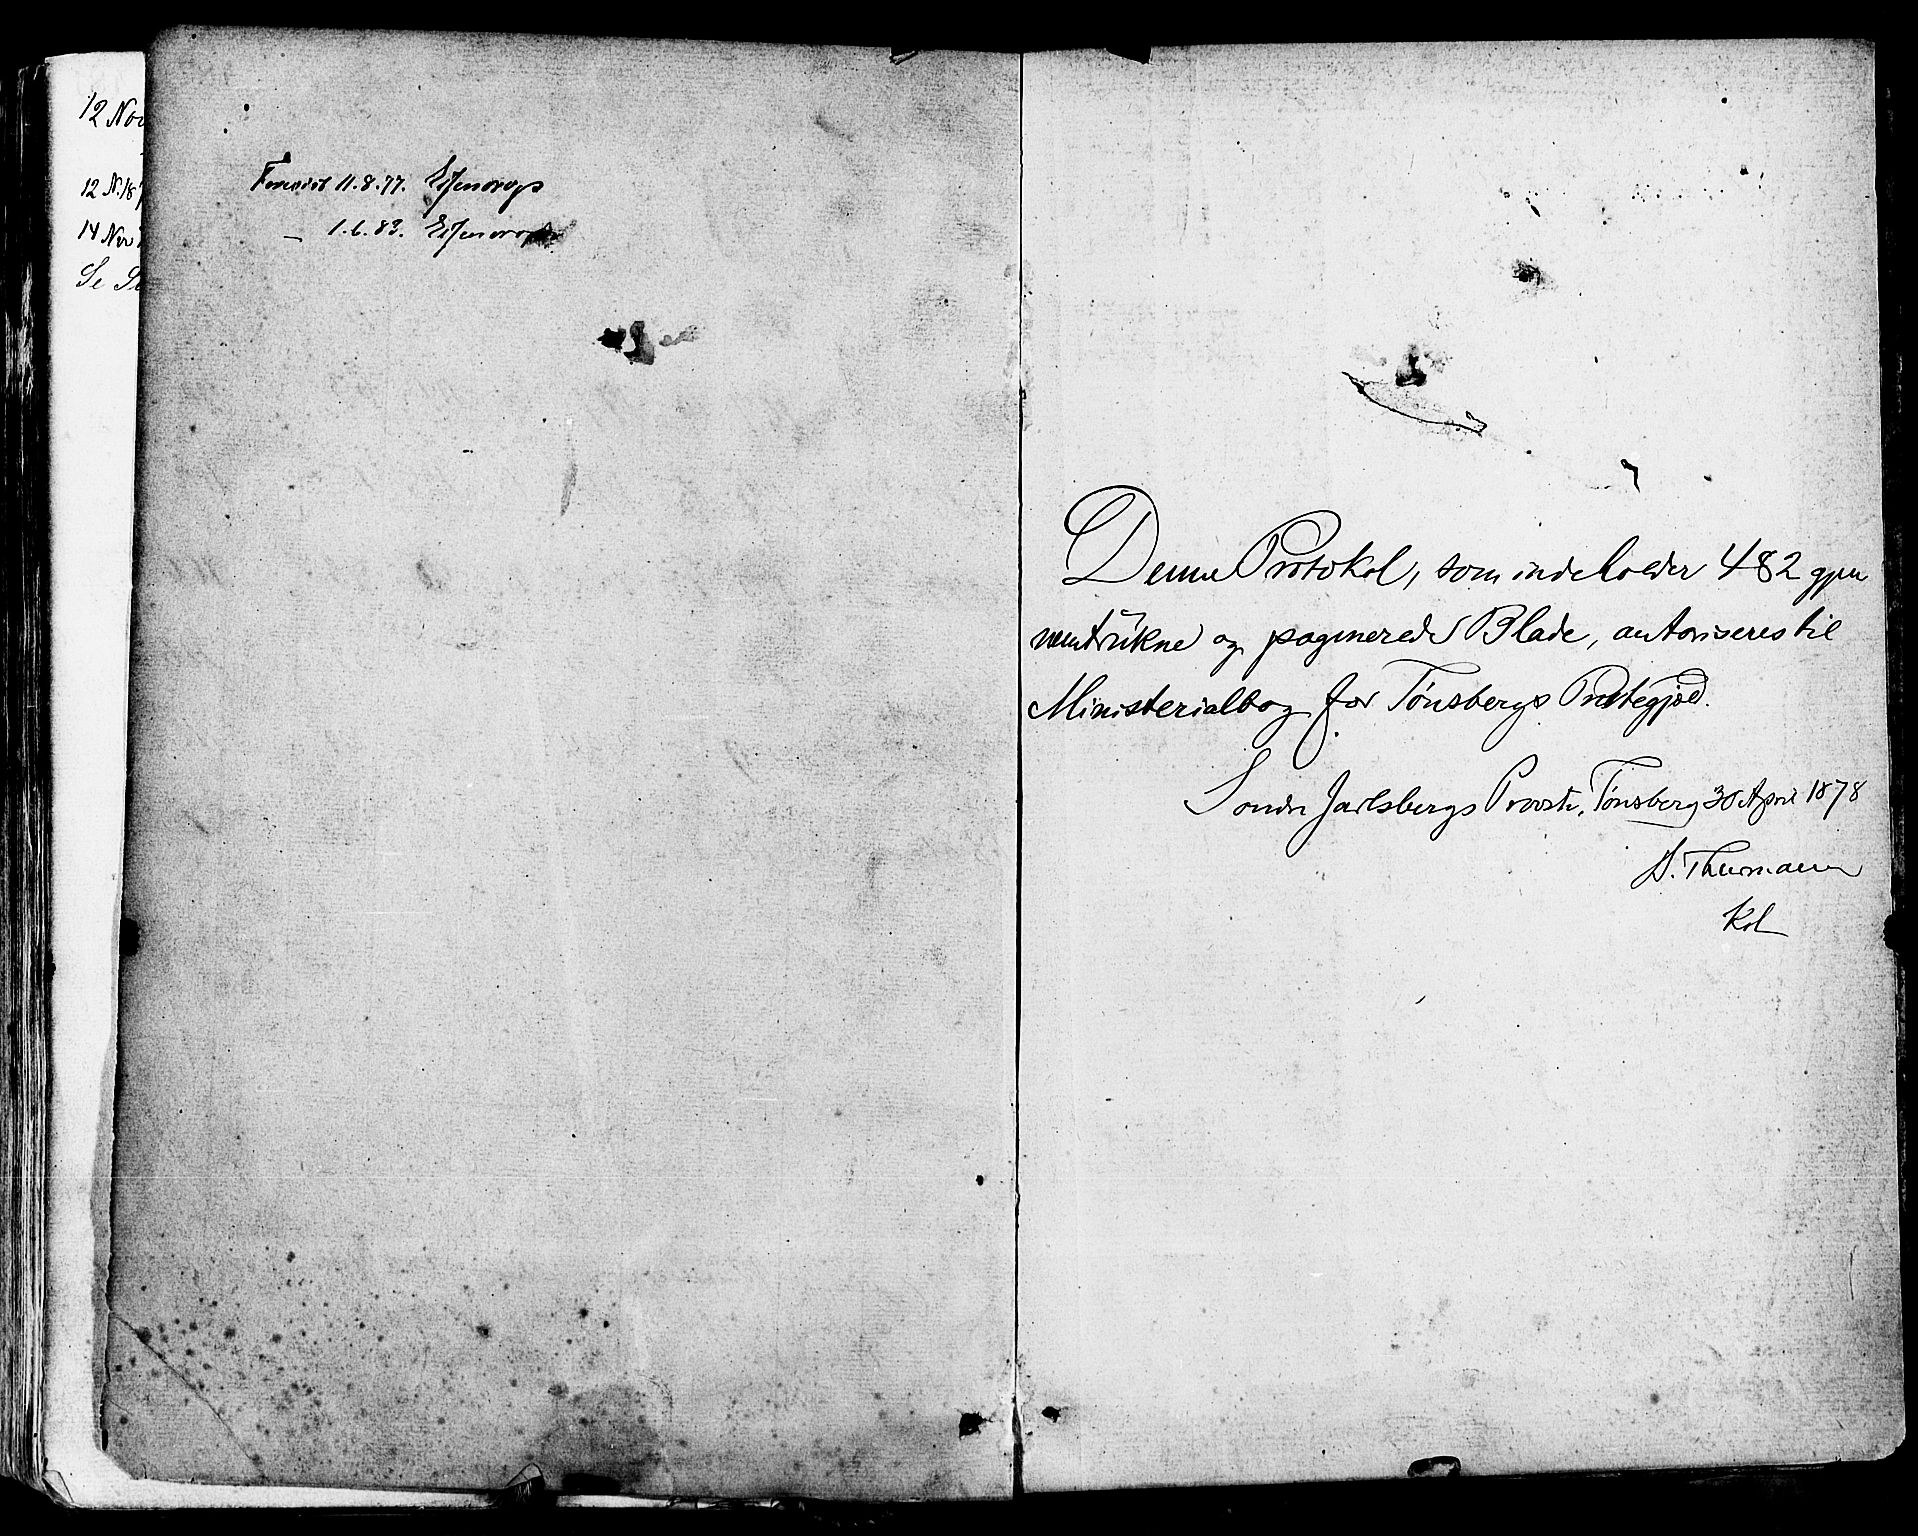 12 Nov
12 N. 18
14 Nov
Se
Forevist 11.8.77.
— 1.6.83.
Denne Protokol, som indeholder 482 gjen
nemtrukne og paginerede Blade, autoriseres til
Ministerialbog for Tønsbergs Præstegjæld.
Søndr Jarlsbergs Provsti, Tønsberg 30 April 1878
Thurmann
Kst